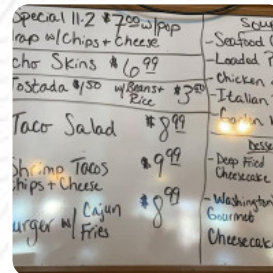 Special 11-2 $7.00 w/pop
rap w/Chips + Cheese
cho Skins $6.99
Tostada $1/50 w/Beans + Rice $3
Taco Salad $8.99
Shrimp Tacos $9.99
Chips + Cheese
urger w/ Cajun Fries $8.99
Sou
- Seafood
- Loaded
- Chicken
- Italian
- Garden
Desse
- Deep Fried
Cheesecake
- Washington
Gourmet
Cheesecak